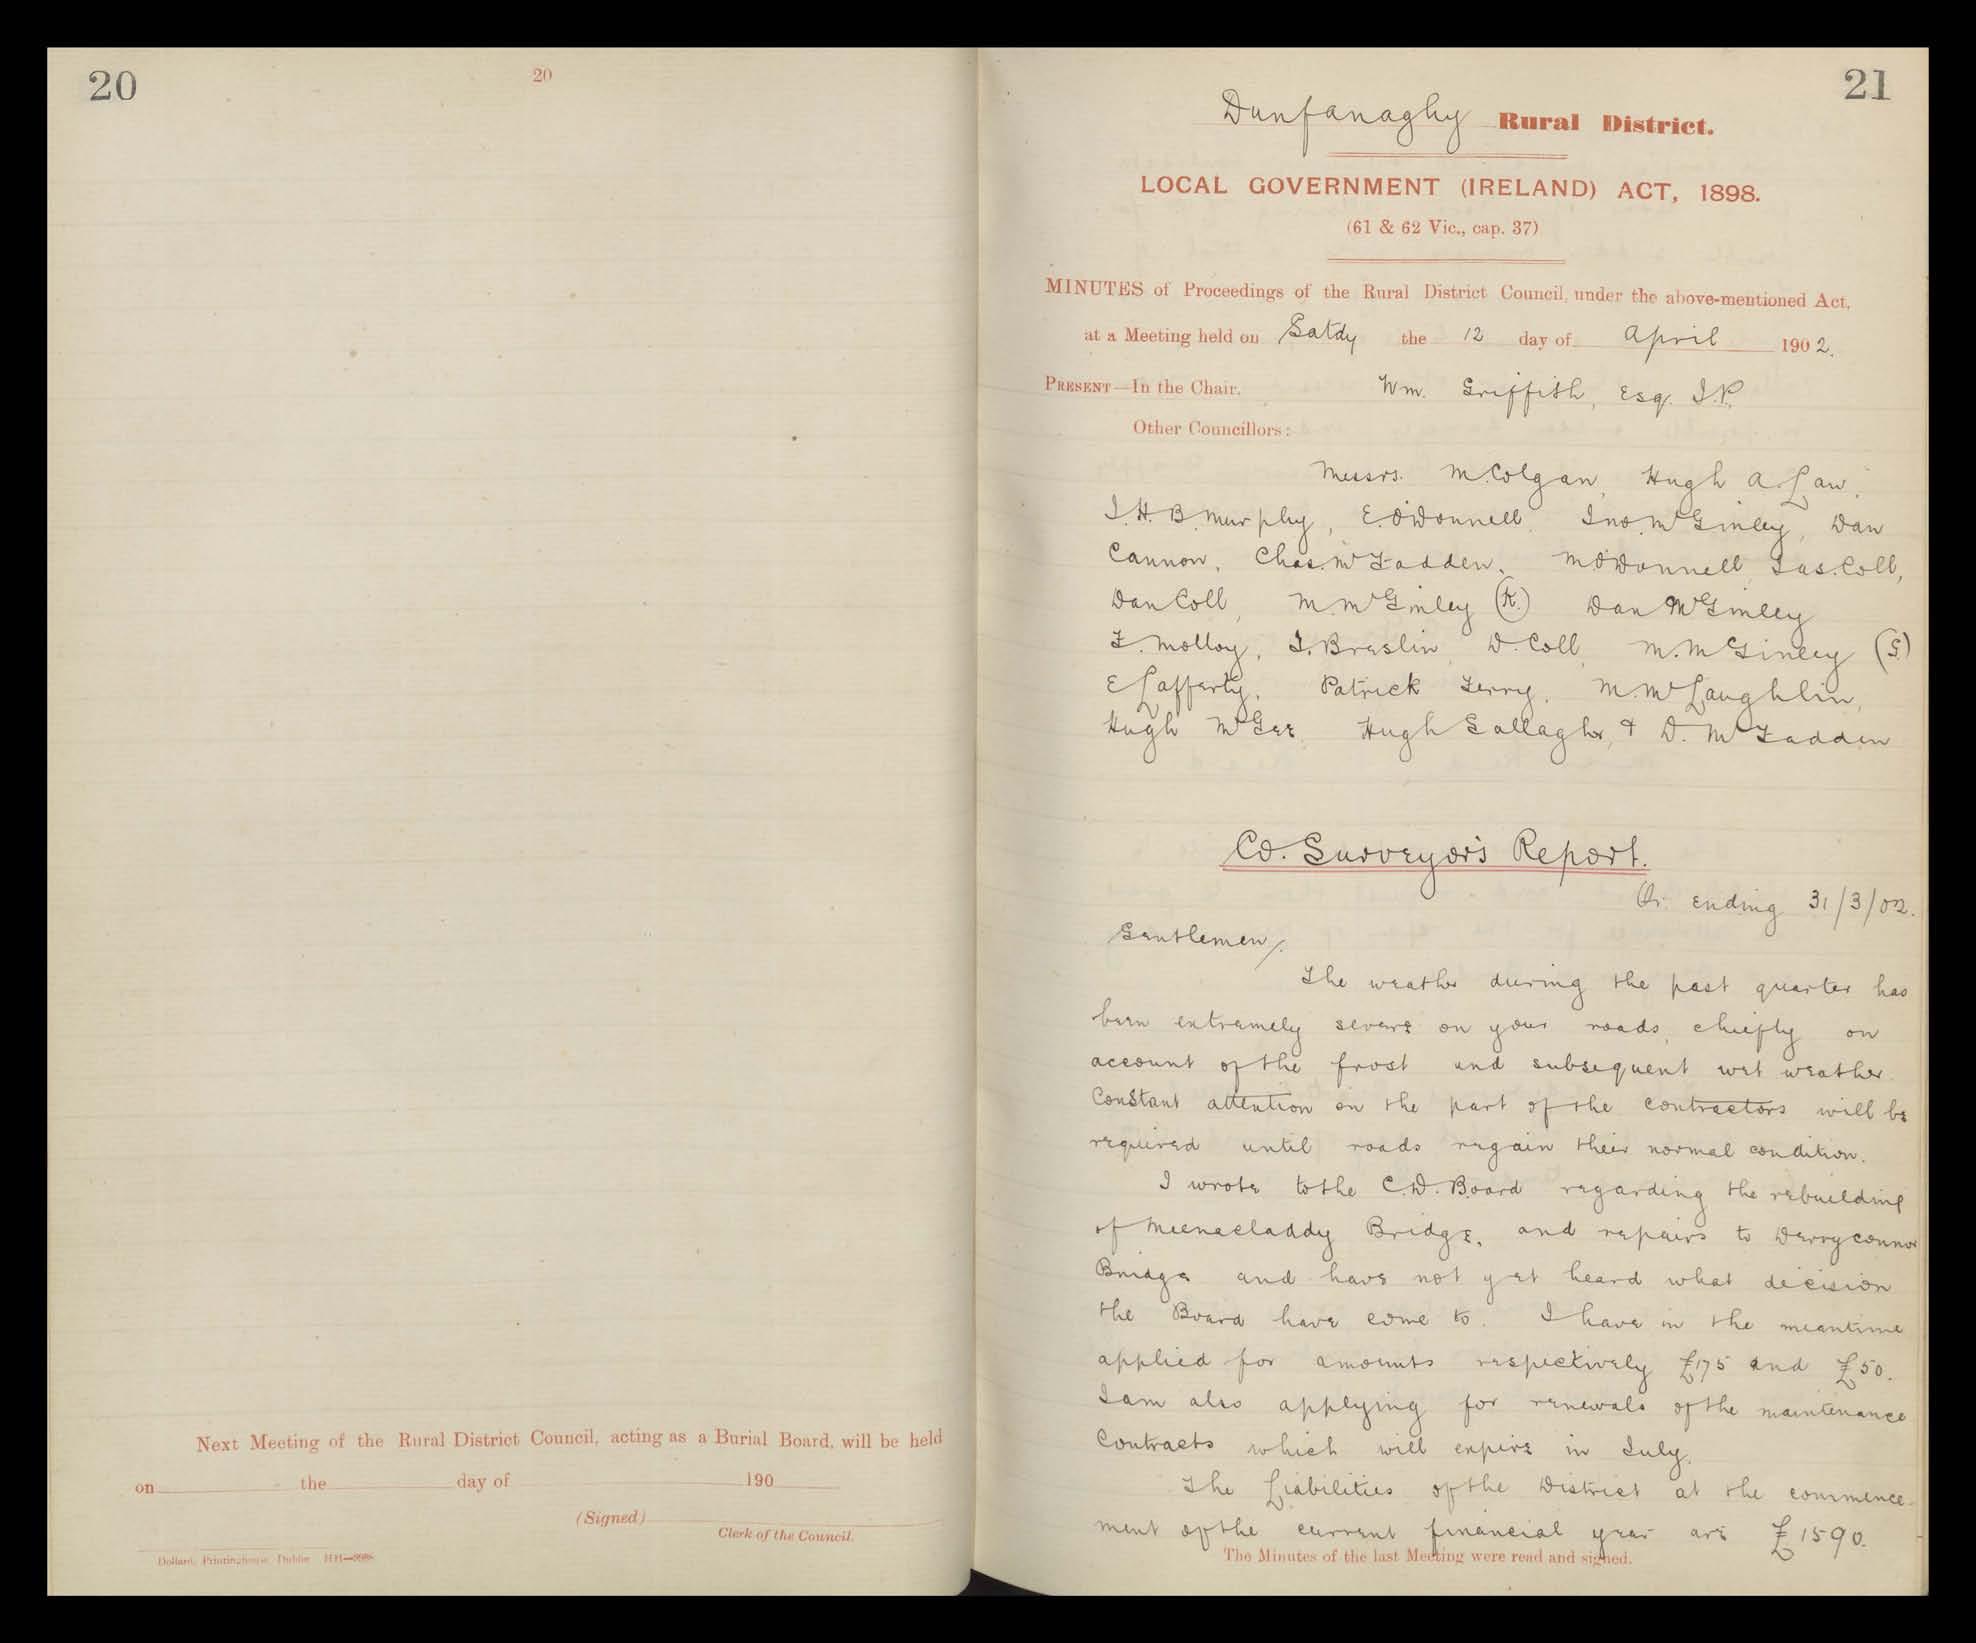 20
20
Next Meeting of the Rural District Council, acting as a Burial Board, will be held
on the day of 190
(Signed)
Clerk of the Council.
Dollard, Printinghouse, Dublin
21
Dunfanaghy Rural District.
LOCAL GOVERNMENT (IRELAND) ACT, 1898.
(61 & 62 Vic., cap. 37)
MINUTES of Proceedings of the Rural District Council, under the above-mentioned Act,
at a Meeting held on Satdy the 12 day of April 1902.
PRESENT—In the Chair. Wm. Griffith, Esq. J.P.
Other Councillors:
Messrs. M. Colgan, Hugh A. Law,
J. H. B. Murphy, E. O'Donnell, Jno. McGinley, Dan
Cannon, Chas. McFadden, M. O'Donnell, Jas. Coll,
Dan Coll, M. McGinley (K.) Dan McGinley
F. Molloy, J. Breslin, D. Coll, M. McGinley (G)
E Lafferty, Patrick Ferry, M. McLaughlin,
Hugh McGee, Hugh Gallagher, & D. McFadden
Co. Surveyor's Report.
Qr. ending 31/3/02.
Gentlemen/.
The weather during the past quarter has
been extremely severe on your roads, chiefly on
account of the frost and subsequent wet weather.
Constant attention on the part of the contractors will be
required until roads regain their normal condition.
I wrote to the C.D. Board regarding the rebuilding
of Meenacladdy Bridge, and repairs to Derryconnor
Bridge and have not yet heard what decision
the Board have come to. I have in the meantime
applied for amounts respectively £175 and £50.
I am also applying for renewals of the maintenance
Contracts which will expire in July.
The Liabilities of the District at the commence-
ment of the current financial year are £1590.
The Minutes of the last Meeting were read and signed.